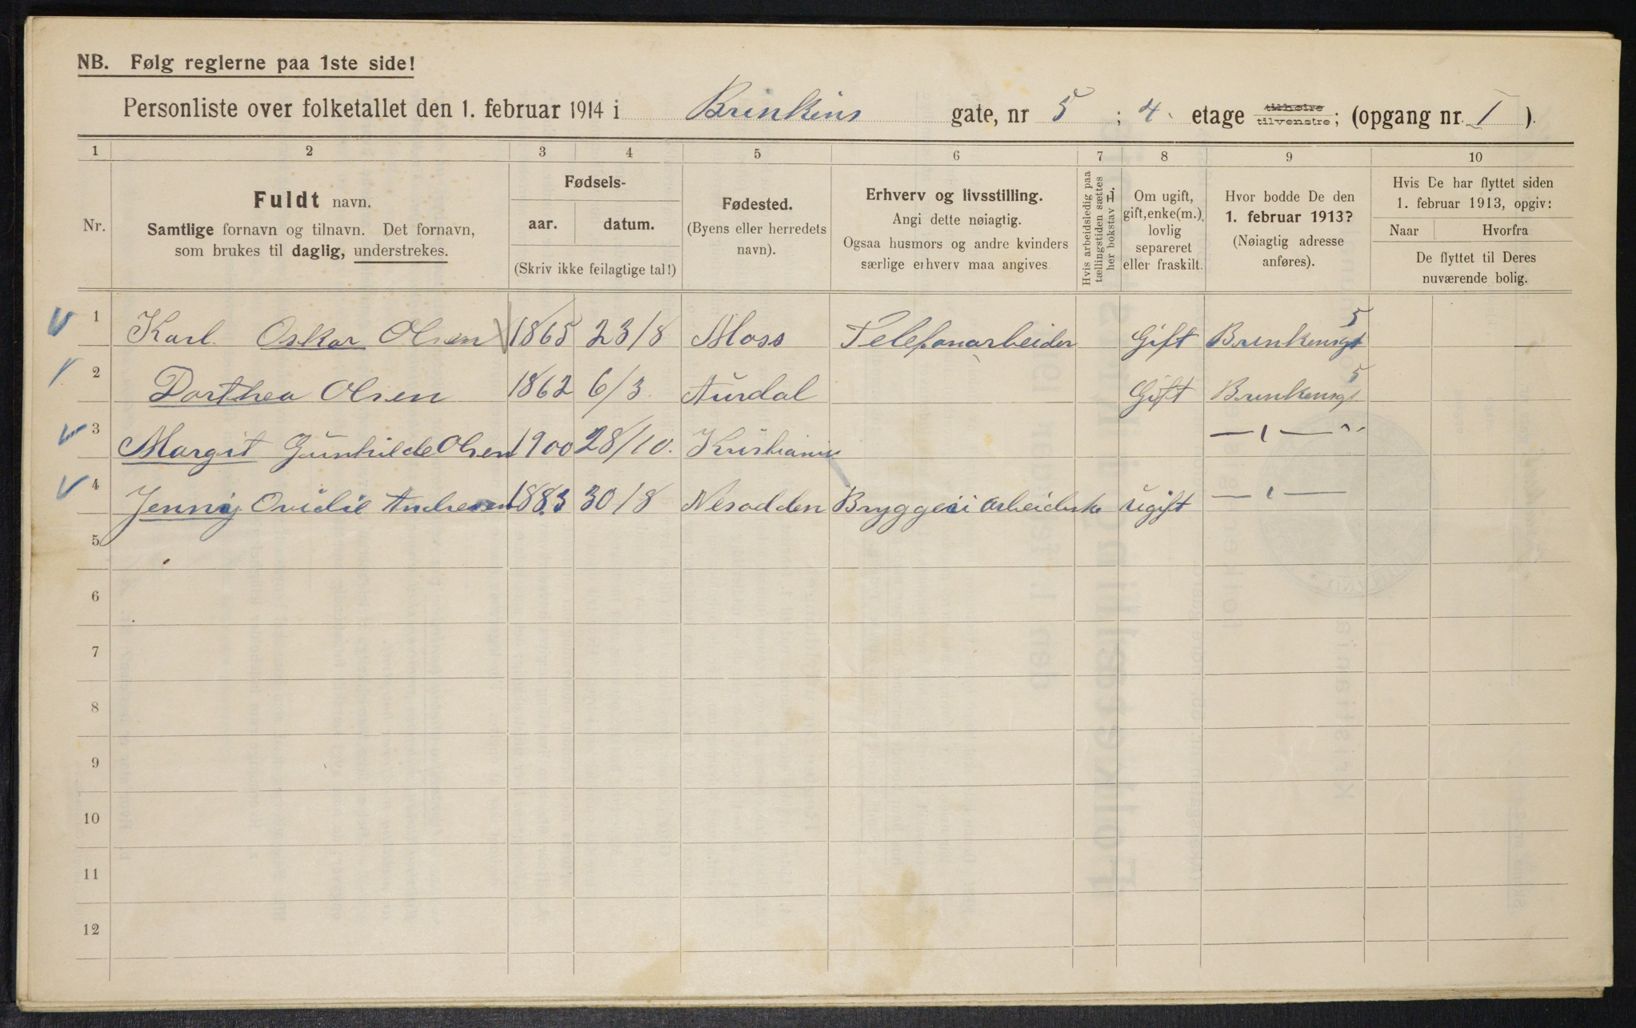 NB. Følg reglerne paa 1ste side!
Personliste over folketallet den 1. februar 1914 i Brinkens gate, nr 5 ; 4. etage tilhøire tilvenstre; (opgang nr. I ).
1 2 3 4 5 6 7 8 9 10
Nr.
Fuldt navn.
Samtlige fornavn og tilnavn. Det fornavn,
som brukes til daglig, understrekes.
Fødsels-
aar. datum.
(Skriv ikke feilagtige tal!)
Fødested.
(Byens eller herredets
navn).
Erhverv og livsstilling.
Angi dette nøiagtig.
Ogsaa husmors og andre kvinders
særlige erhverv maa angives
Hvis arbeidsledig paa
tællingstiden sættes
her bokstav L.
Om ugift,
gift, enke(m.),
lovlig
separeret
eller fraskilt.
Hvor bodde De den
1. februar 1913?
(Nøiagtig adresse
anføres).
Hvis De har flyttet siden
1. februar 1913, opgiv:
Naar Hvorfra
De flyttet til Deres
nuværende bolig.
1 Karl Oskar Olsen 1865 23/8 Moss Telefonarbeider Gift Brinkensgt 5
2 Dorthea Olsen 1862 6/3 Aurdal Gift Brinkensgt 5
3 Margit Gunhilde Olsen 1900 28/10. Kristiania — ı — "
4 Jenny Ovidie Andresen 1883 30/8 Nesodden Bryggeriarbeiderske Ugift — ı —
5
6
7
8
9
10
11
12